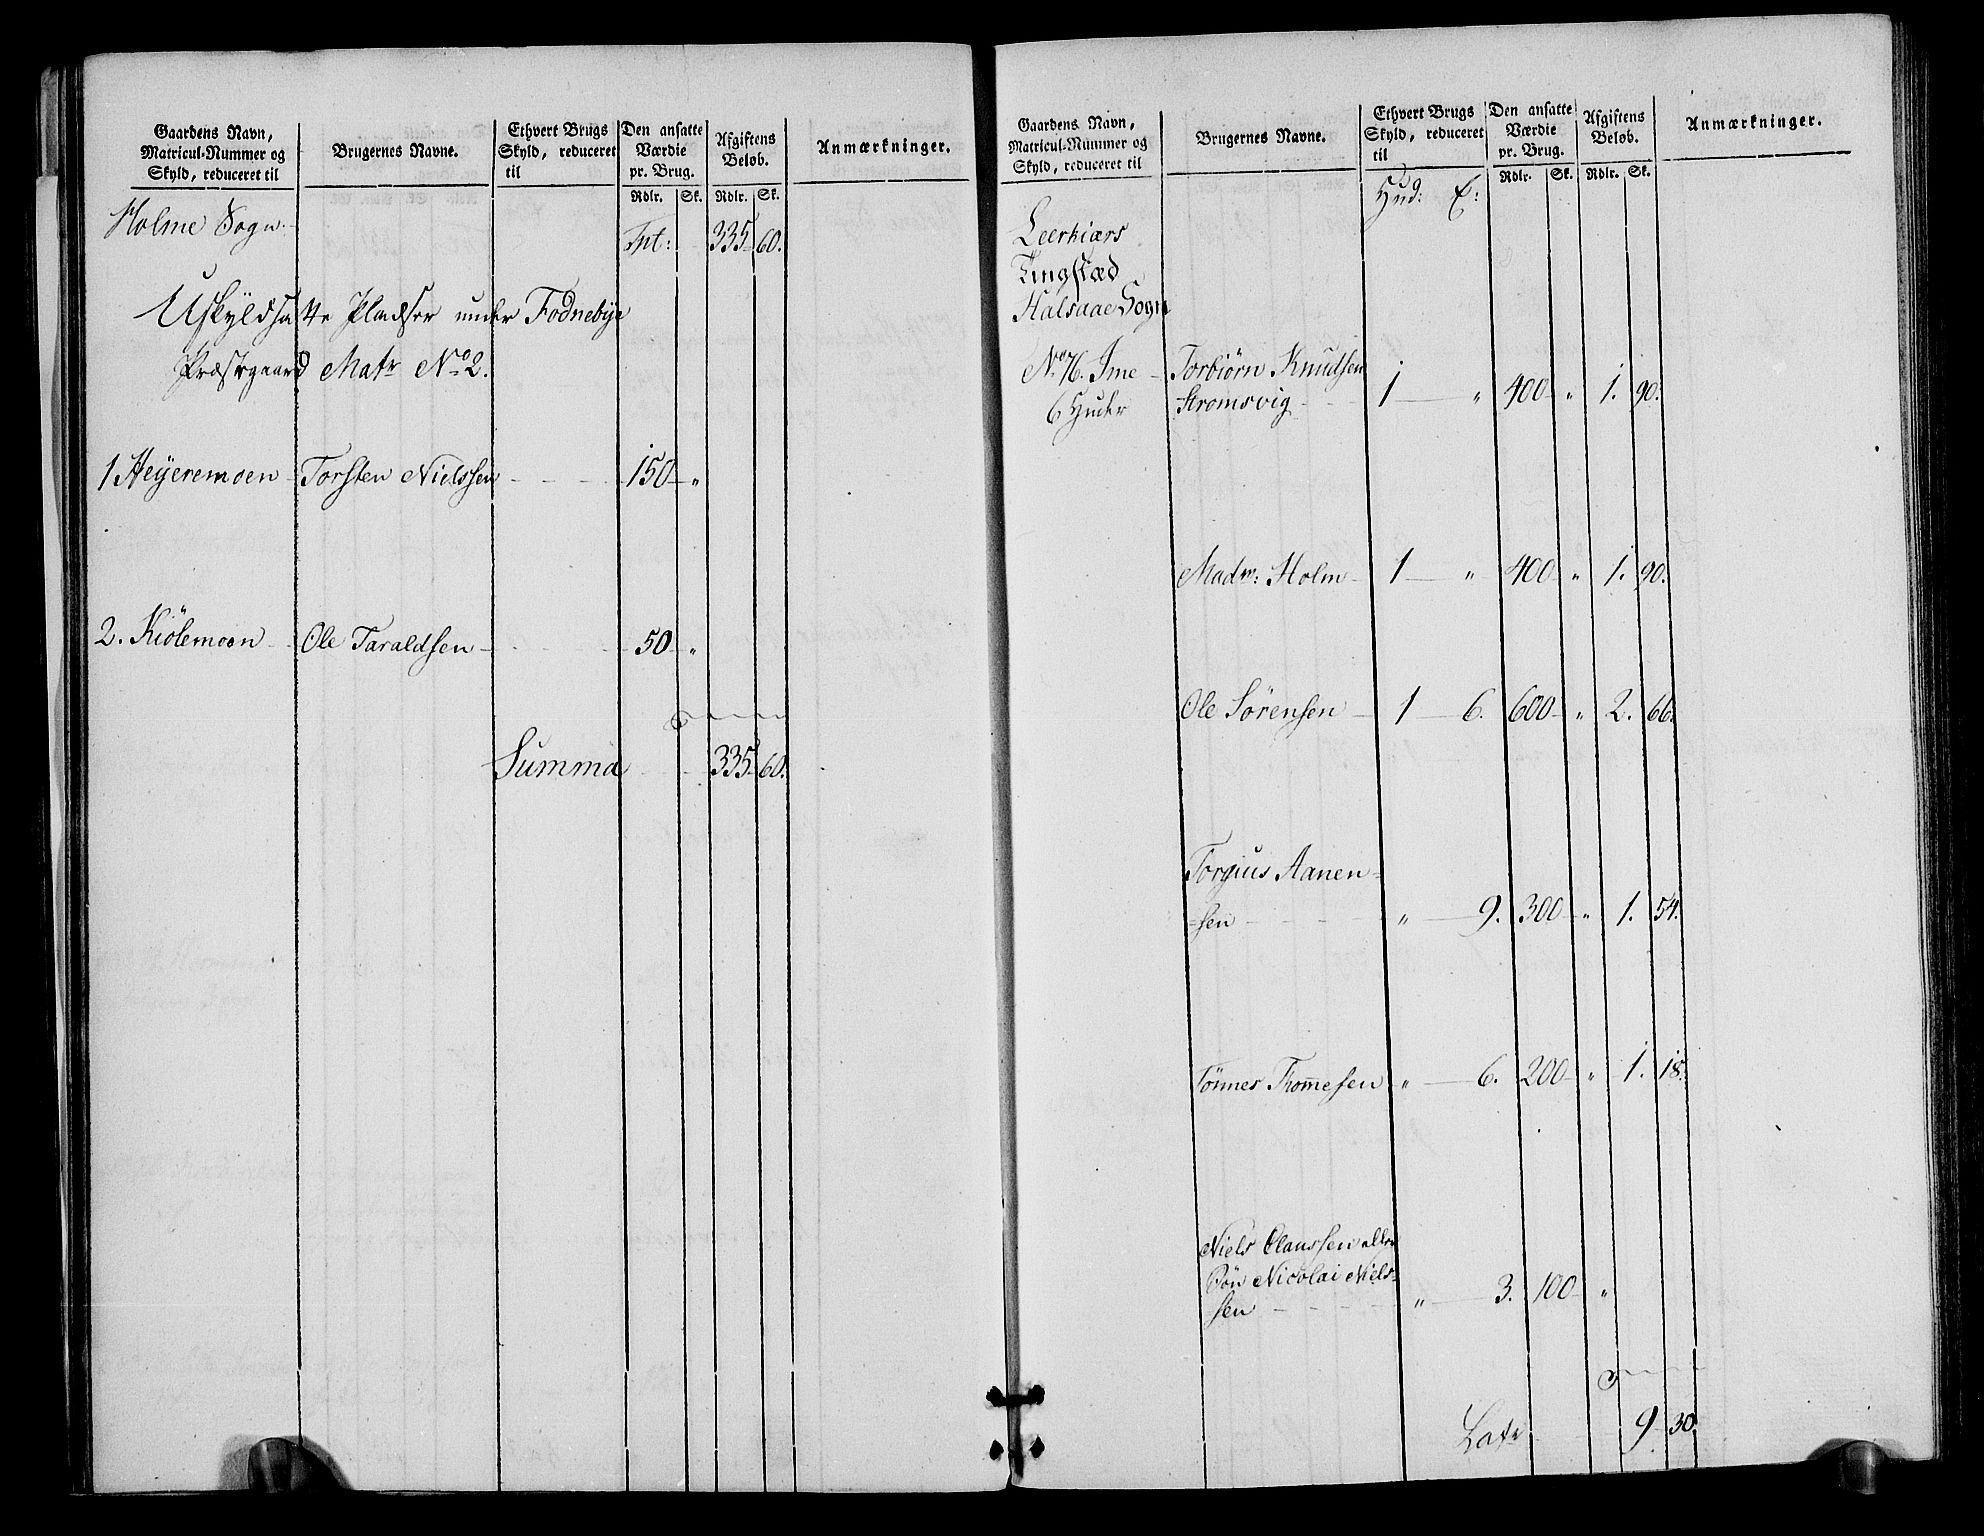 Gaardens Navn, Matricul-Nummer og Skyld, reduceret til
Brugernes Navne.
Ethvert Brugs Skyld, reduceret til
Den ansatte Værdie pr. Brug.
Rdlr. Sk.
Afgiftens Beløb.
Rdlr. Sk.
Anmærkninger.
Holme Sogn. Tpt: 335 60.
Uskyldsatte Pladser under Fodnebye
Præstegaard Matr No 2.
1 Heyeremoen Torsten Nielssen 150 "
2. Kiølemoen Ole Taraldsen 50 "
Summa 335 60.
Gaardens Navn, Matricul-Nummer og Skyld, reduceret til
Brugernes Navne.
Ethvert Brugs Skyld, reduceret til
Den ansatte Værdie pr. Brug.
Rdlr. Sk.
Afgiftens Beløb.
Rdlr. Sk.
Anmærkninger.
Hud:
Leerkiærs
Tingstæd
Halsaae Sogn
No 76. Ime Torbiørn Knudsen
6 Huder Stromsvig 1 " 400 " 1. 90.
Madm: Holm 1 " 400 " 1. 90.
Ole Sørensen 1 6. 600 " 2. 66.
Torgius Aanen-
-sen " 9. 300 " 1. 54.
Tönnes Thomesen " 6. 200 " 1. 18.
Niels Claussen eller
Søn Nicolai Niels-
sen " 3. 100 "
Latr 9 30.